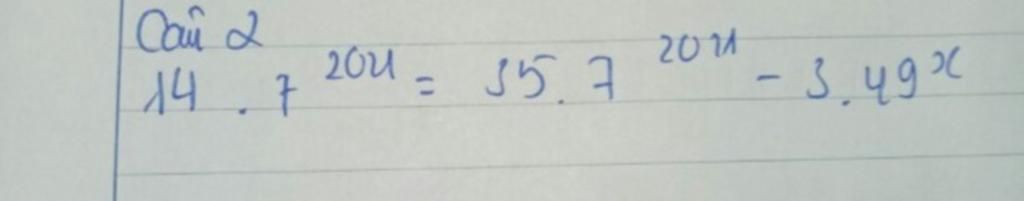 Câu 2
14 . 7^2021 = 35 . 7^2021 - 3 . 49^x